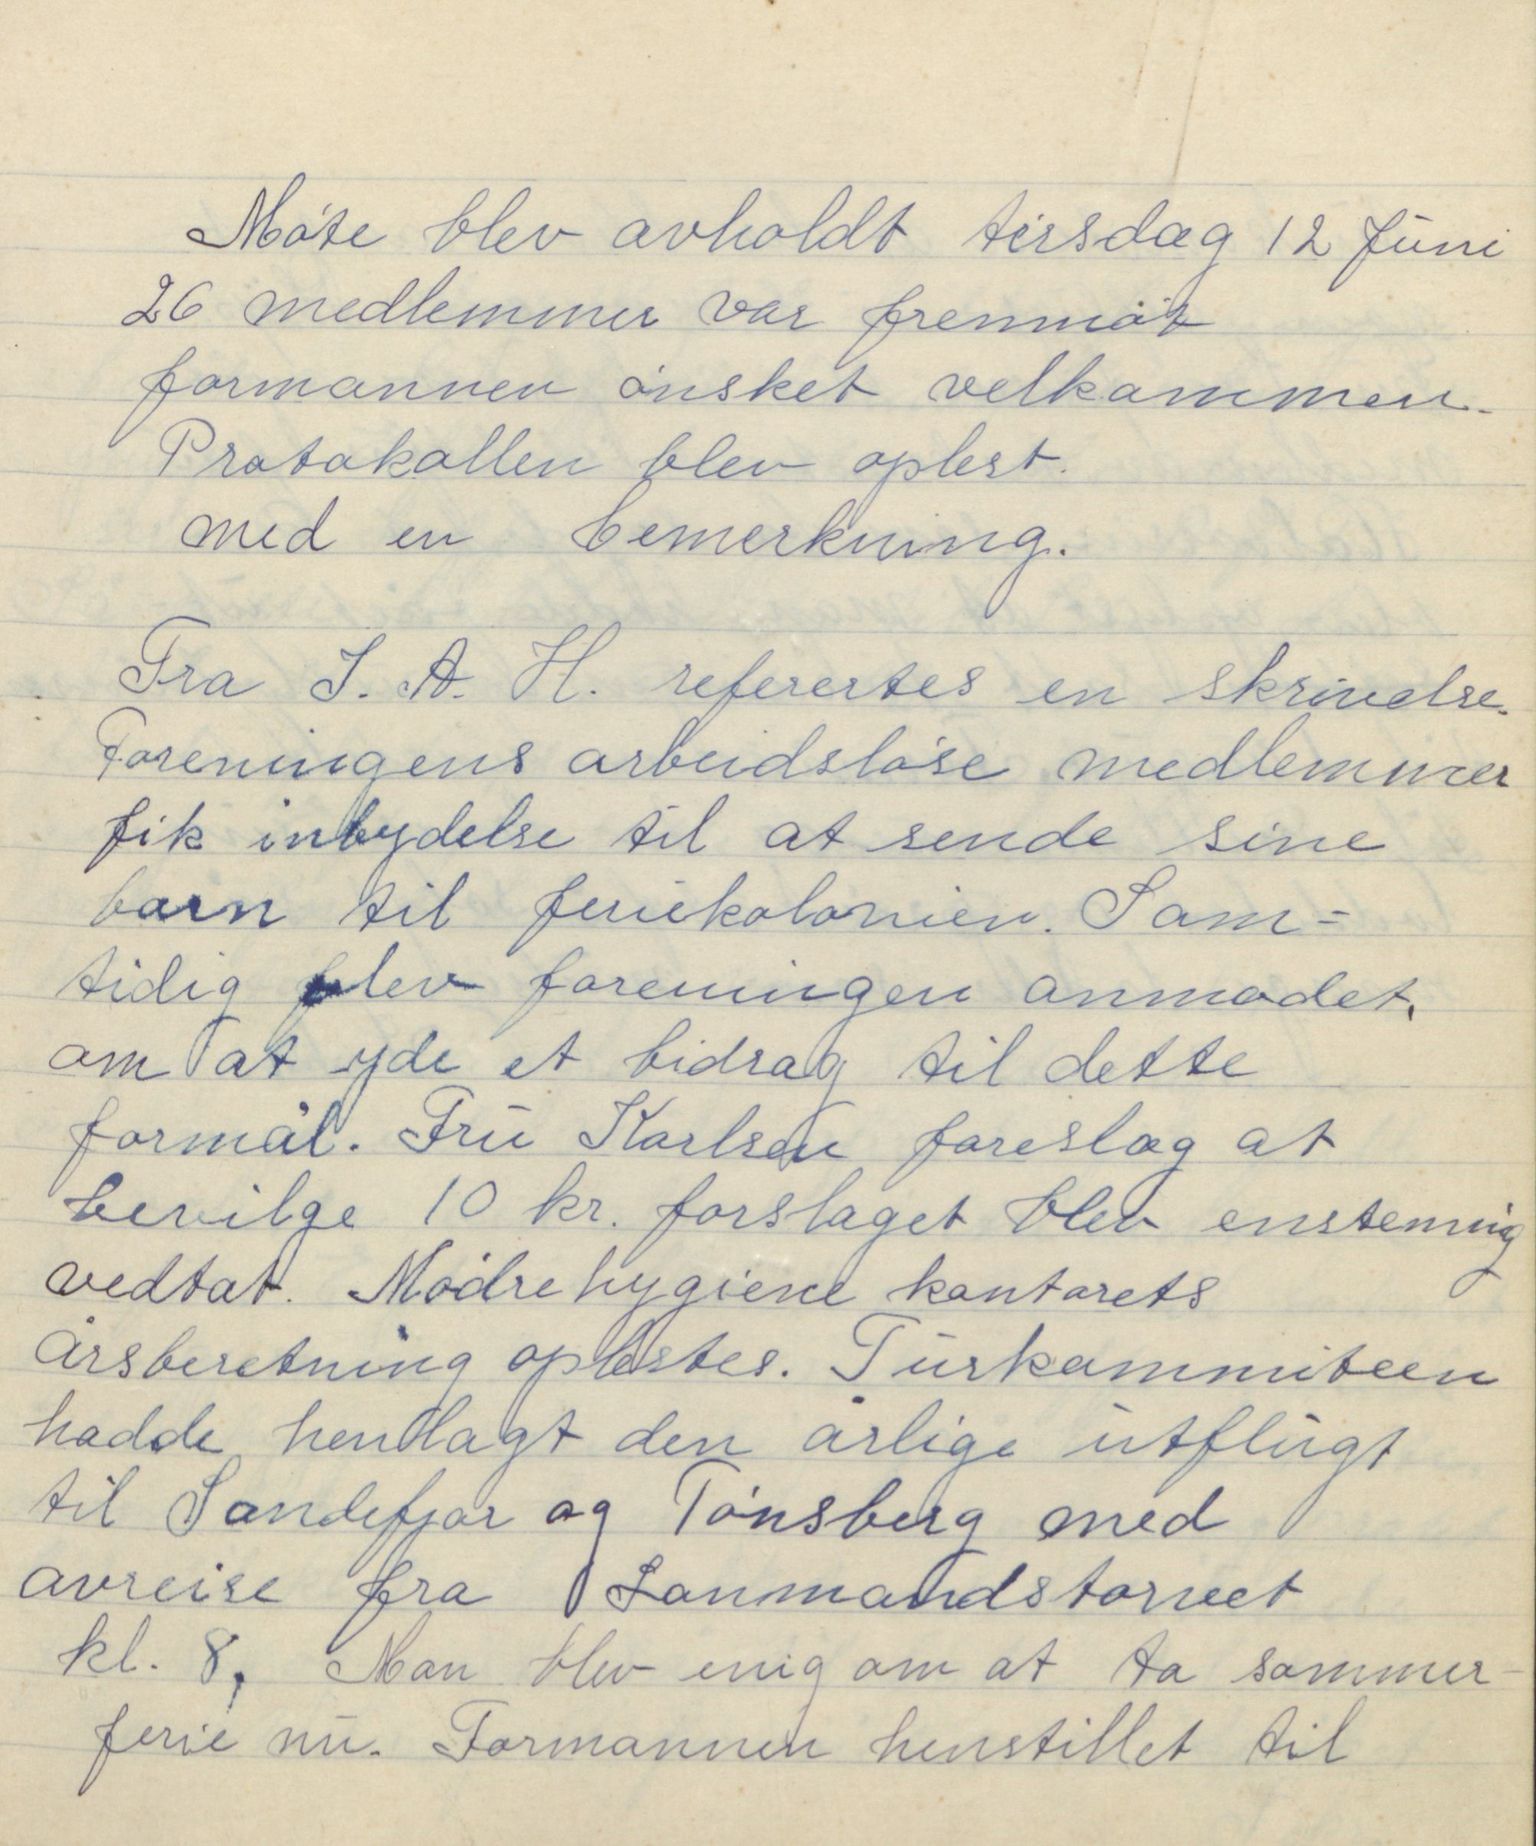 Møte blev avholdt tirsdag 12 Juni
26 medlemmer var fremmøt
formannen ønsket velkommen.
Protokollen blev oplest.
med en bemerkning.
Fra I. A. H. referertes en skrivelse.
Foreningens arbeidsløse medlemmer
fik inbydelse til at sende sine
barn til feriekolonien. Sam=
tidig blev foreningen anmodet,
om at yde et bidrag til dette
formål. Fru Karlsen foreslog at
bevilge 10 kr. forslaget blev enstemig
vedtat. Mødrehygiene kontorets
årsberetning oplestes. Turkommiteen
hadde henlagt den årlige utflugt
til Sandefjor og Tønsberg med
avreise fra Lanmandstorvet
kl. 8, Man blev enig om at ta sommer-
ferie nu. Formannen henstillet til